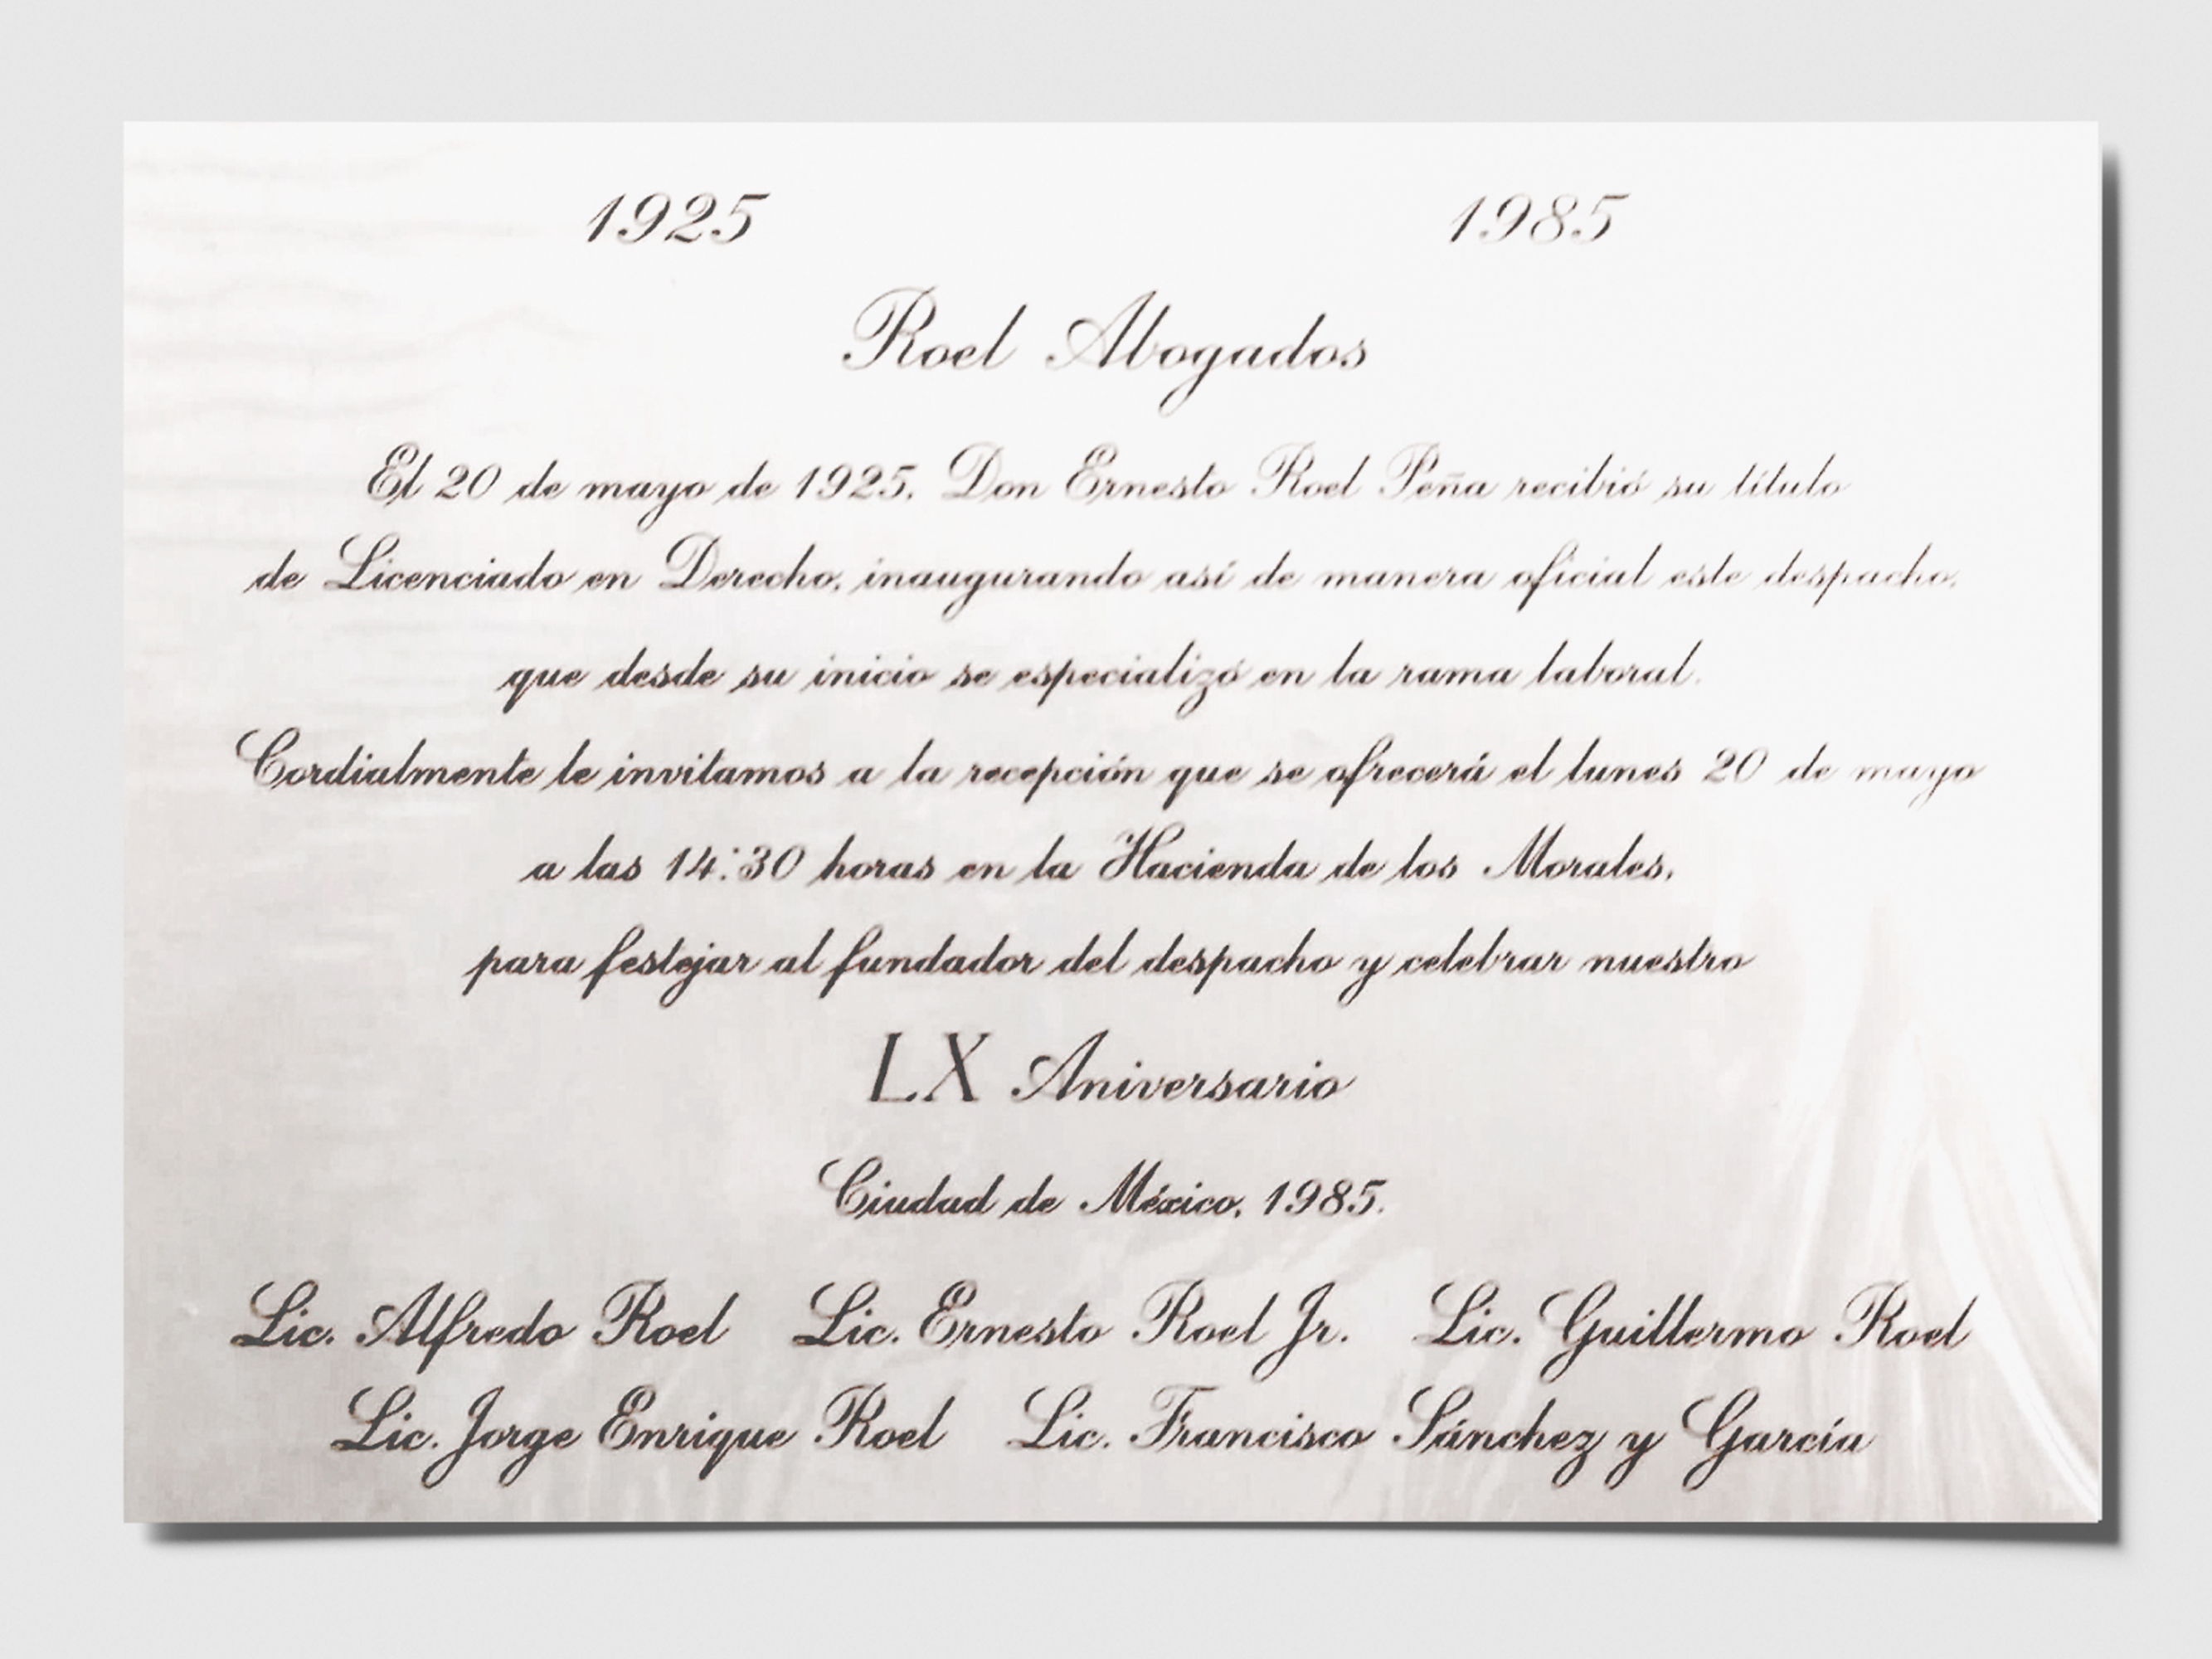 1925 1985
Roel Abogados
El 20 de mayo de 1925, Don Ernesto Roel Peña recibió su título
de Licenciado en Derecho, inaugurando así de manera oficial este despacho,
que desde su inicio se especializó en la rama laboral.
Cordialmente le invitamos a la recepción que se ofrecerá el lunes 20 de mayo
a las 14:30 horas en la Hacienda de los Morales,
para festejar al fundador del despacho y celebrar nuestro
LX Aniversario
Ciudad de México, 1985.
Lic. Alfredo Roel Lic. Ernesto Roel Jr. Lic. Guillermo Roel
Lic. Jorge Enrique Roel Lic. Francisco Sánchez y García